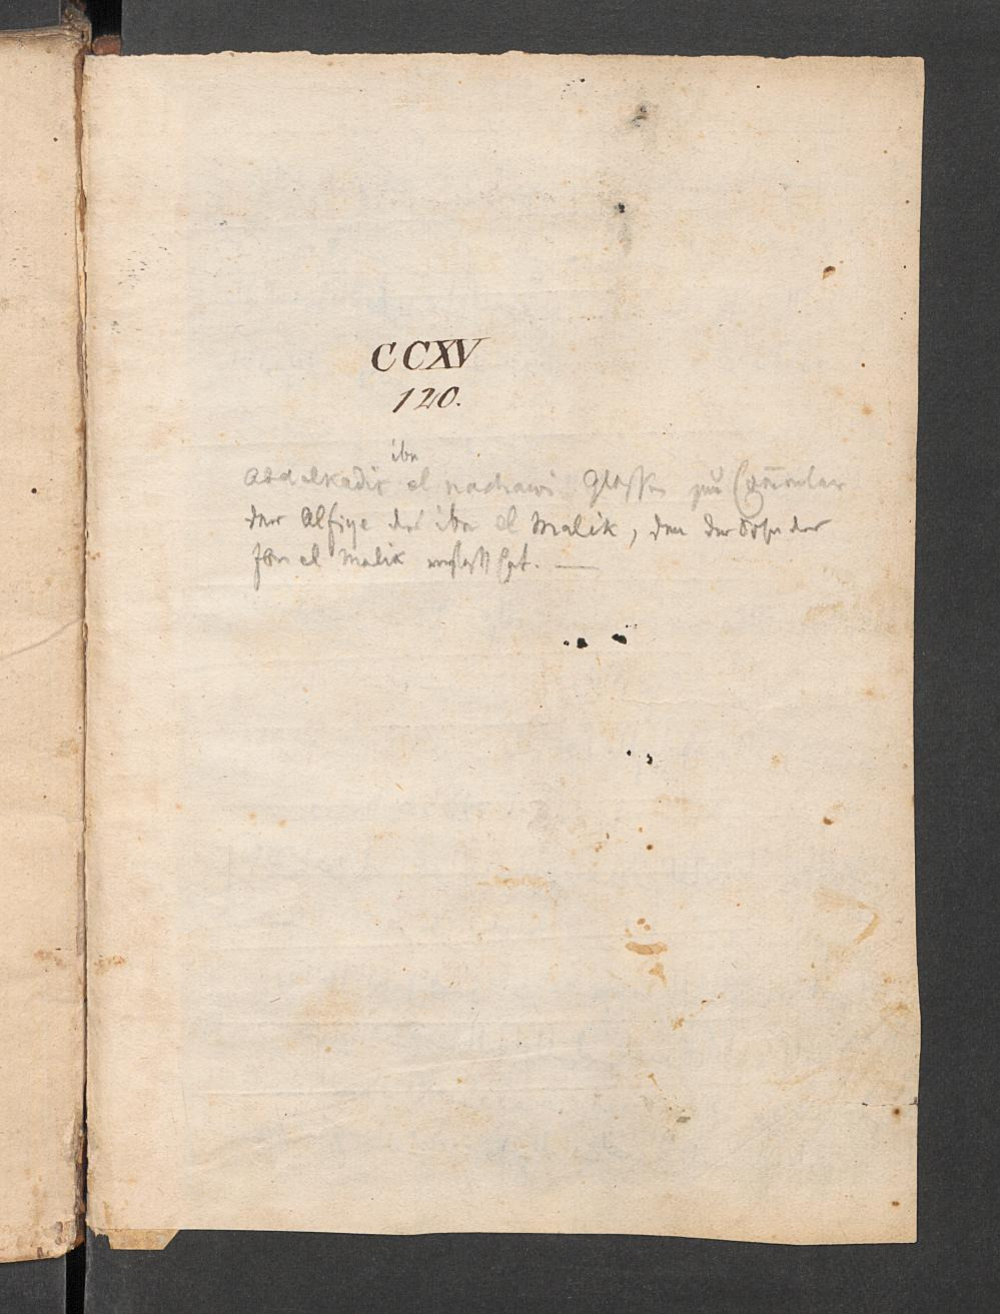 CCXV
120.
ibn
Abdelkadir el nachawi Glossen zum Commentar
der Alfiye des ibn el Malik, den der Sohn des
Ibn el Malik verfasst hat. —